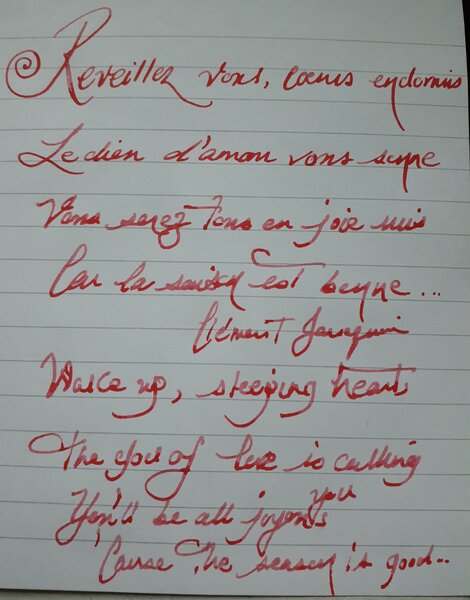 Reveillez vous, cœurs endormis
Le dieu d'amour vous sonne
Vous serez tous en joie mis
Car la saison est bonne...
Clément Janequin
Wake up, sleeping hearts
The god of love is calling
you
You'll be all joyous
'Cause the season is good..